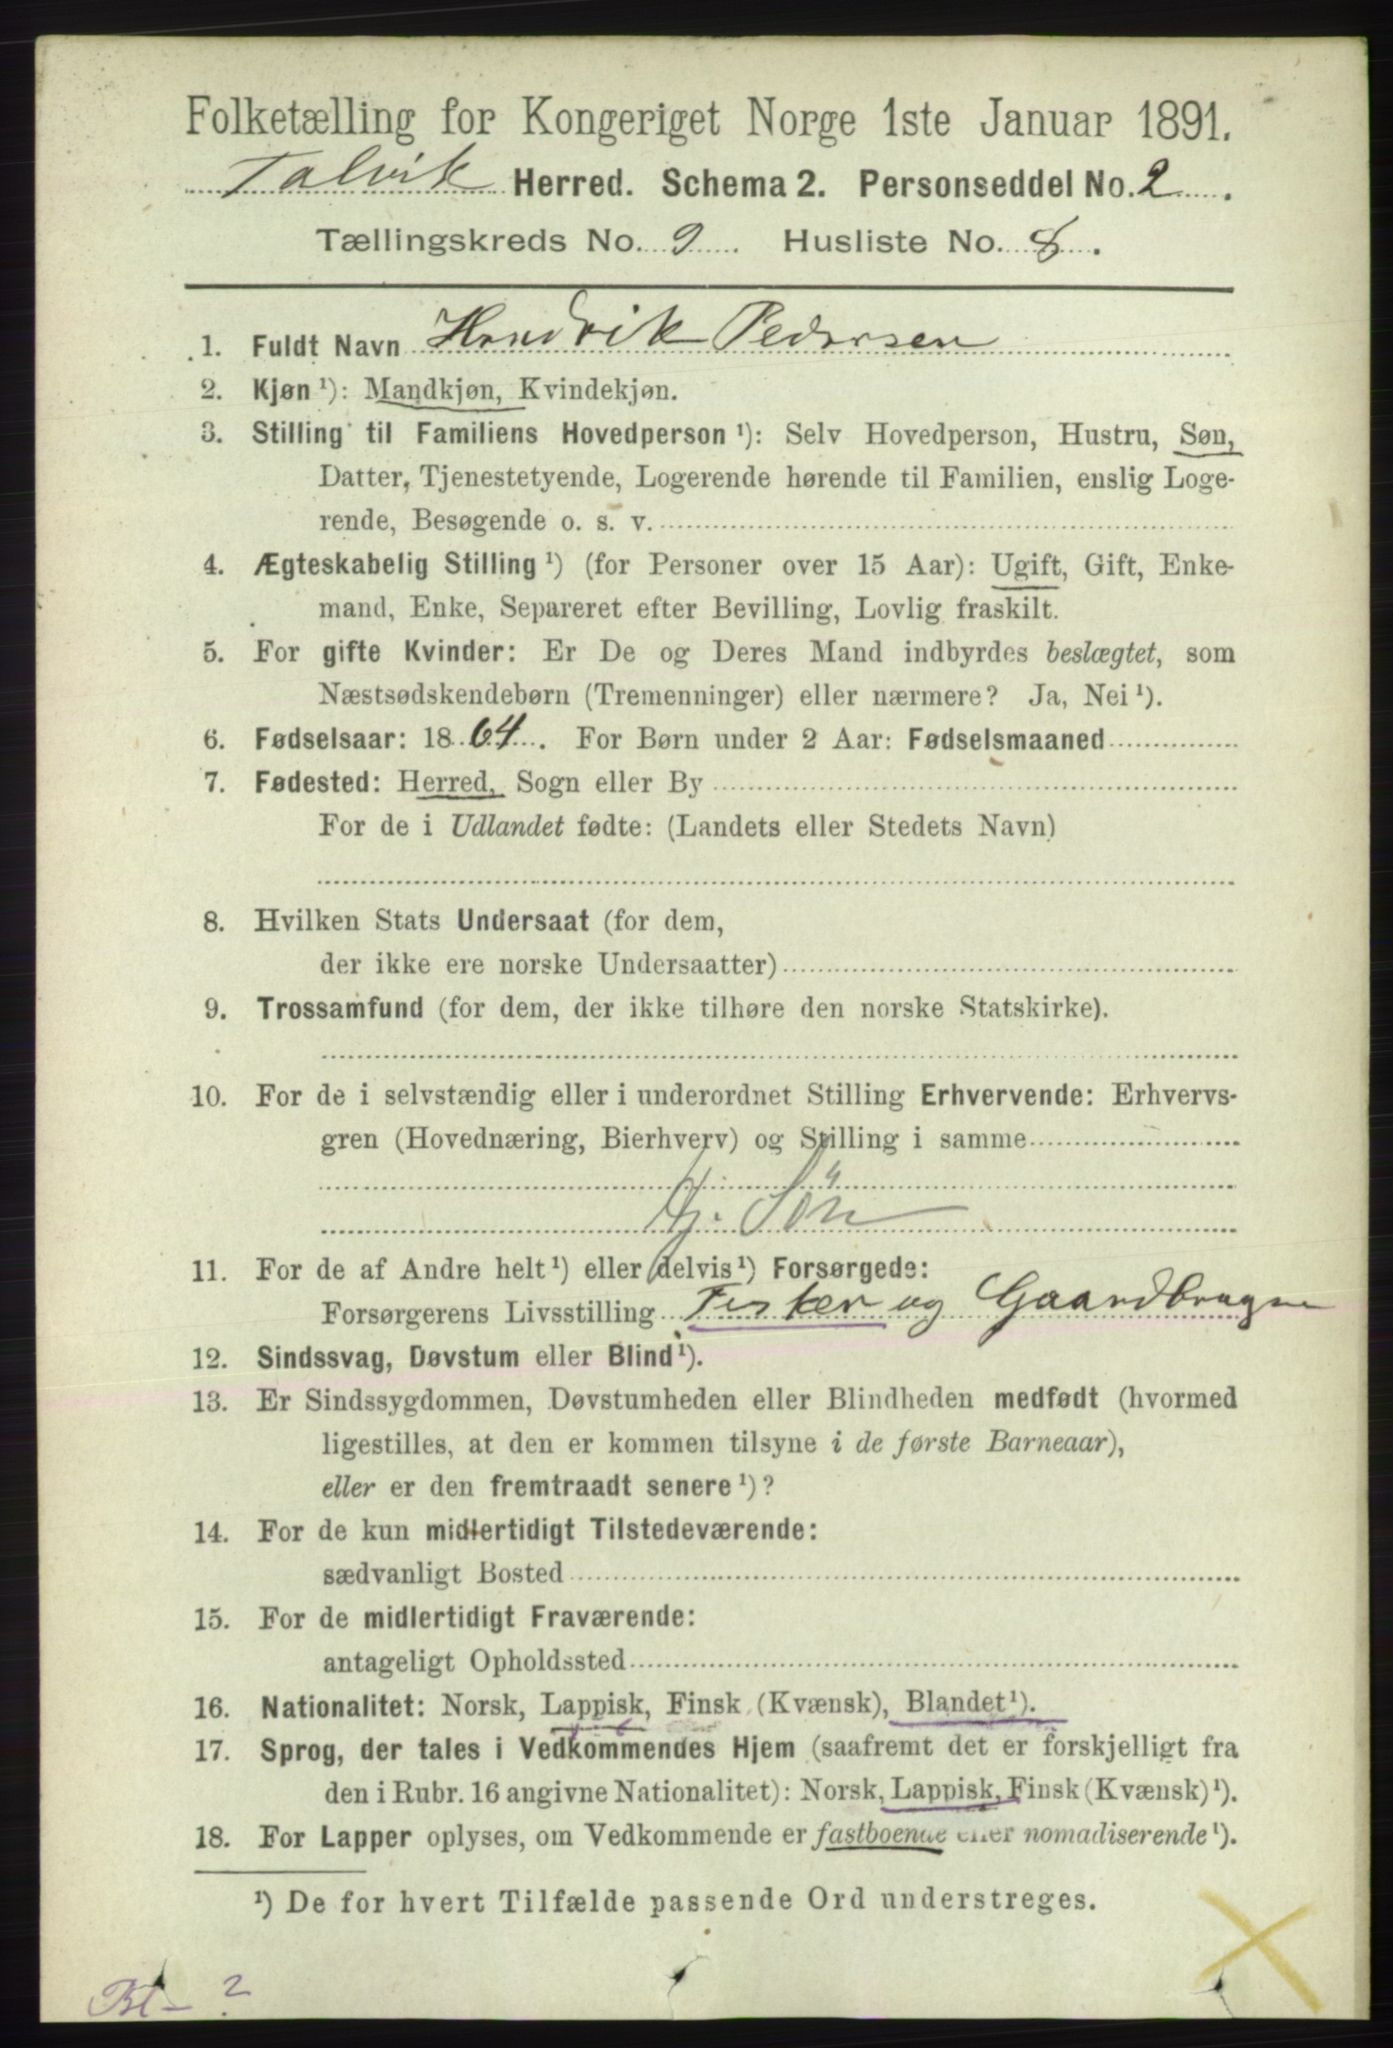 Folketælling for Kongeriget Norge 1ste Januar 1891.
Talvik Herred. Schema 2. Personseddel No. 2.
Tællingskreds No. 9. Husliste No. 8.
1. Fuldt Navn Hendrik Pedersen
2. Kjøn ¹): Mandkjøn, Kvindekjøn.
3. Stilling til Familiens Hovedperson ¹): Selv Hovedperson, Hustru, Søn,
Datter, Tjenestetyende, Logerende hørende til Familien, enslig Loge-
rende, Besøgende o. s. v.
4. Ægteskabelig Stilling ¹) (for Personer over 15 Aar): Ugift, Gift, Enke-
mand, Enke, Separeret efter Bevilling, Lovlig fraskilt.
5. For gifte Kvinder: Er De og Deres Mand indbyrdes beslægtet, som
Næstsødskendebørn (Tremenninger) eller nærmere? Ja, Nei ¹).
6. Fødselsaar: 1864. For Børn under 2 Aar: Fødselsmaaned
7. Fødested: Herred, Sogn eller By
For de i Udlandet fødte: (Landets eller Stedets Navn)
8. Hvilken Stats Undersaat (for dem,
der ikke ere norske Undersaatter)
9. Trossamfund (for dem, der ikke tilhøre den norske Statskirke).
10. For de i selvstændig eller i underordnet Stilling Erhvervende: Erhvervs-
gren (Hovednæring, Bierhverv) og Stilling i samme
G. Sön
11. For de af Andre helt ¹) eller delvis ¹) Forsørgede:
Forsørgerens Livsstilling Fisker og Gaardbruger
12. Sindssvag, Døvstum eller Blind ¹).
13. Er Sindssygdommen, Døvstumheden eller Blindheden medfødt (hvormed
ligestilles, at den er kommen tilsyne i de første Barneaar),
eller er den fremtraadt senere ¹)?
14. For de kun midlertidigt Tilstedeværende:
sædvanligt Bosted
15. For de midlertidigt Fraværende:
antageligt Opholdssted
16. Nationalitet: Norsk, Lappisk, Finsk (Kvænsk), Blandet ¹).
17. Sprog, der tales i Vedkommendes Hjem (saafremt det er forskjelligt fra
den i Rubr. 16 angivne Nationalitet): Norsk, Lappisk, Finsk (Kvænsk) ¹).
18. For Lapper oplyses, om Vedkommende er fastboende eller nomadiserende ¹).
¹) De for hvert Tilfælde passende Ord understreges.
Bl – ?